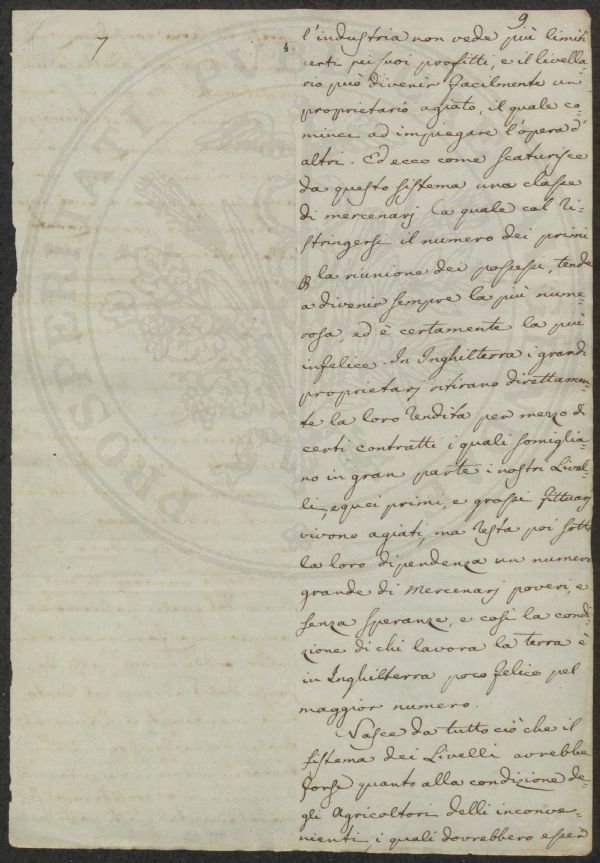 7
9
l'industria non vede più limiti
certi pei suoi profitti, e il livella-
rio può divenir facilmente un
proprietario agiato, il quale co-
minci ad impiegare l'opera d'
altri. Ed ecco come scaturisce
da questo sistema una classe
di mercenarj la quale col ri-
stringersi il numero dei primi
la riunione dei possessi, tende
a divenir sempre la più nume-
rosa, ed è certamente la più
infelice. In Inghilterra i grandi
proprietarj ritirano direttamen-
te la loro rendita per mezzo di
certi contratti i quali somiglia-
no in gran parte i nostri Livel-
li, e quei primi, e grossi fittuarj
vivono agiati, ma resta poi sotto
la loro dipendenza un numero
grande di Mercenarj poveri, e
senza speranze, e così la condi-
zione di chi lavora la terra è
in Inghilterra poco felice pel
maggior numero.
Nasce da tutto ciò che il
sistema dei Livelli avrebbe
forse quanto alla condizione de-
gli Agricoltori delli inconve-
nienti, i quali dovrebbero esser
PROSPERITATI